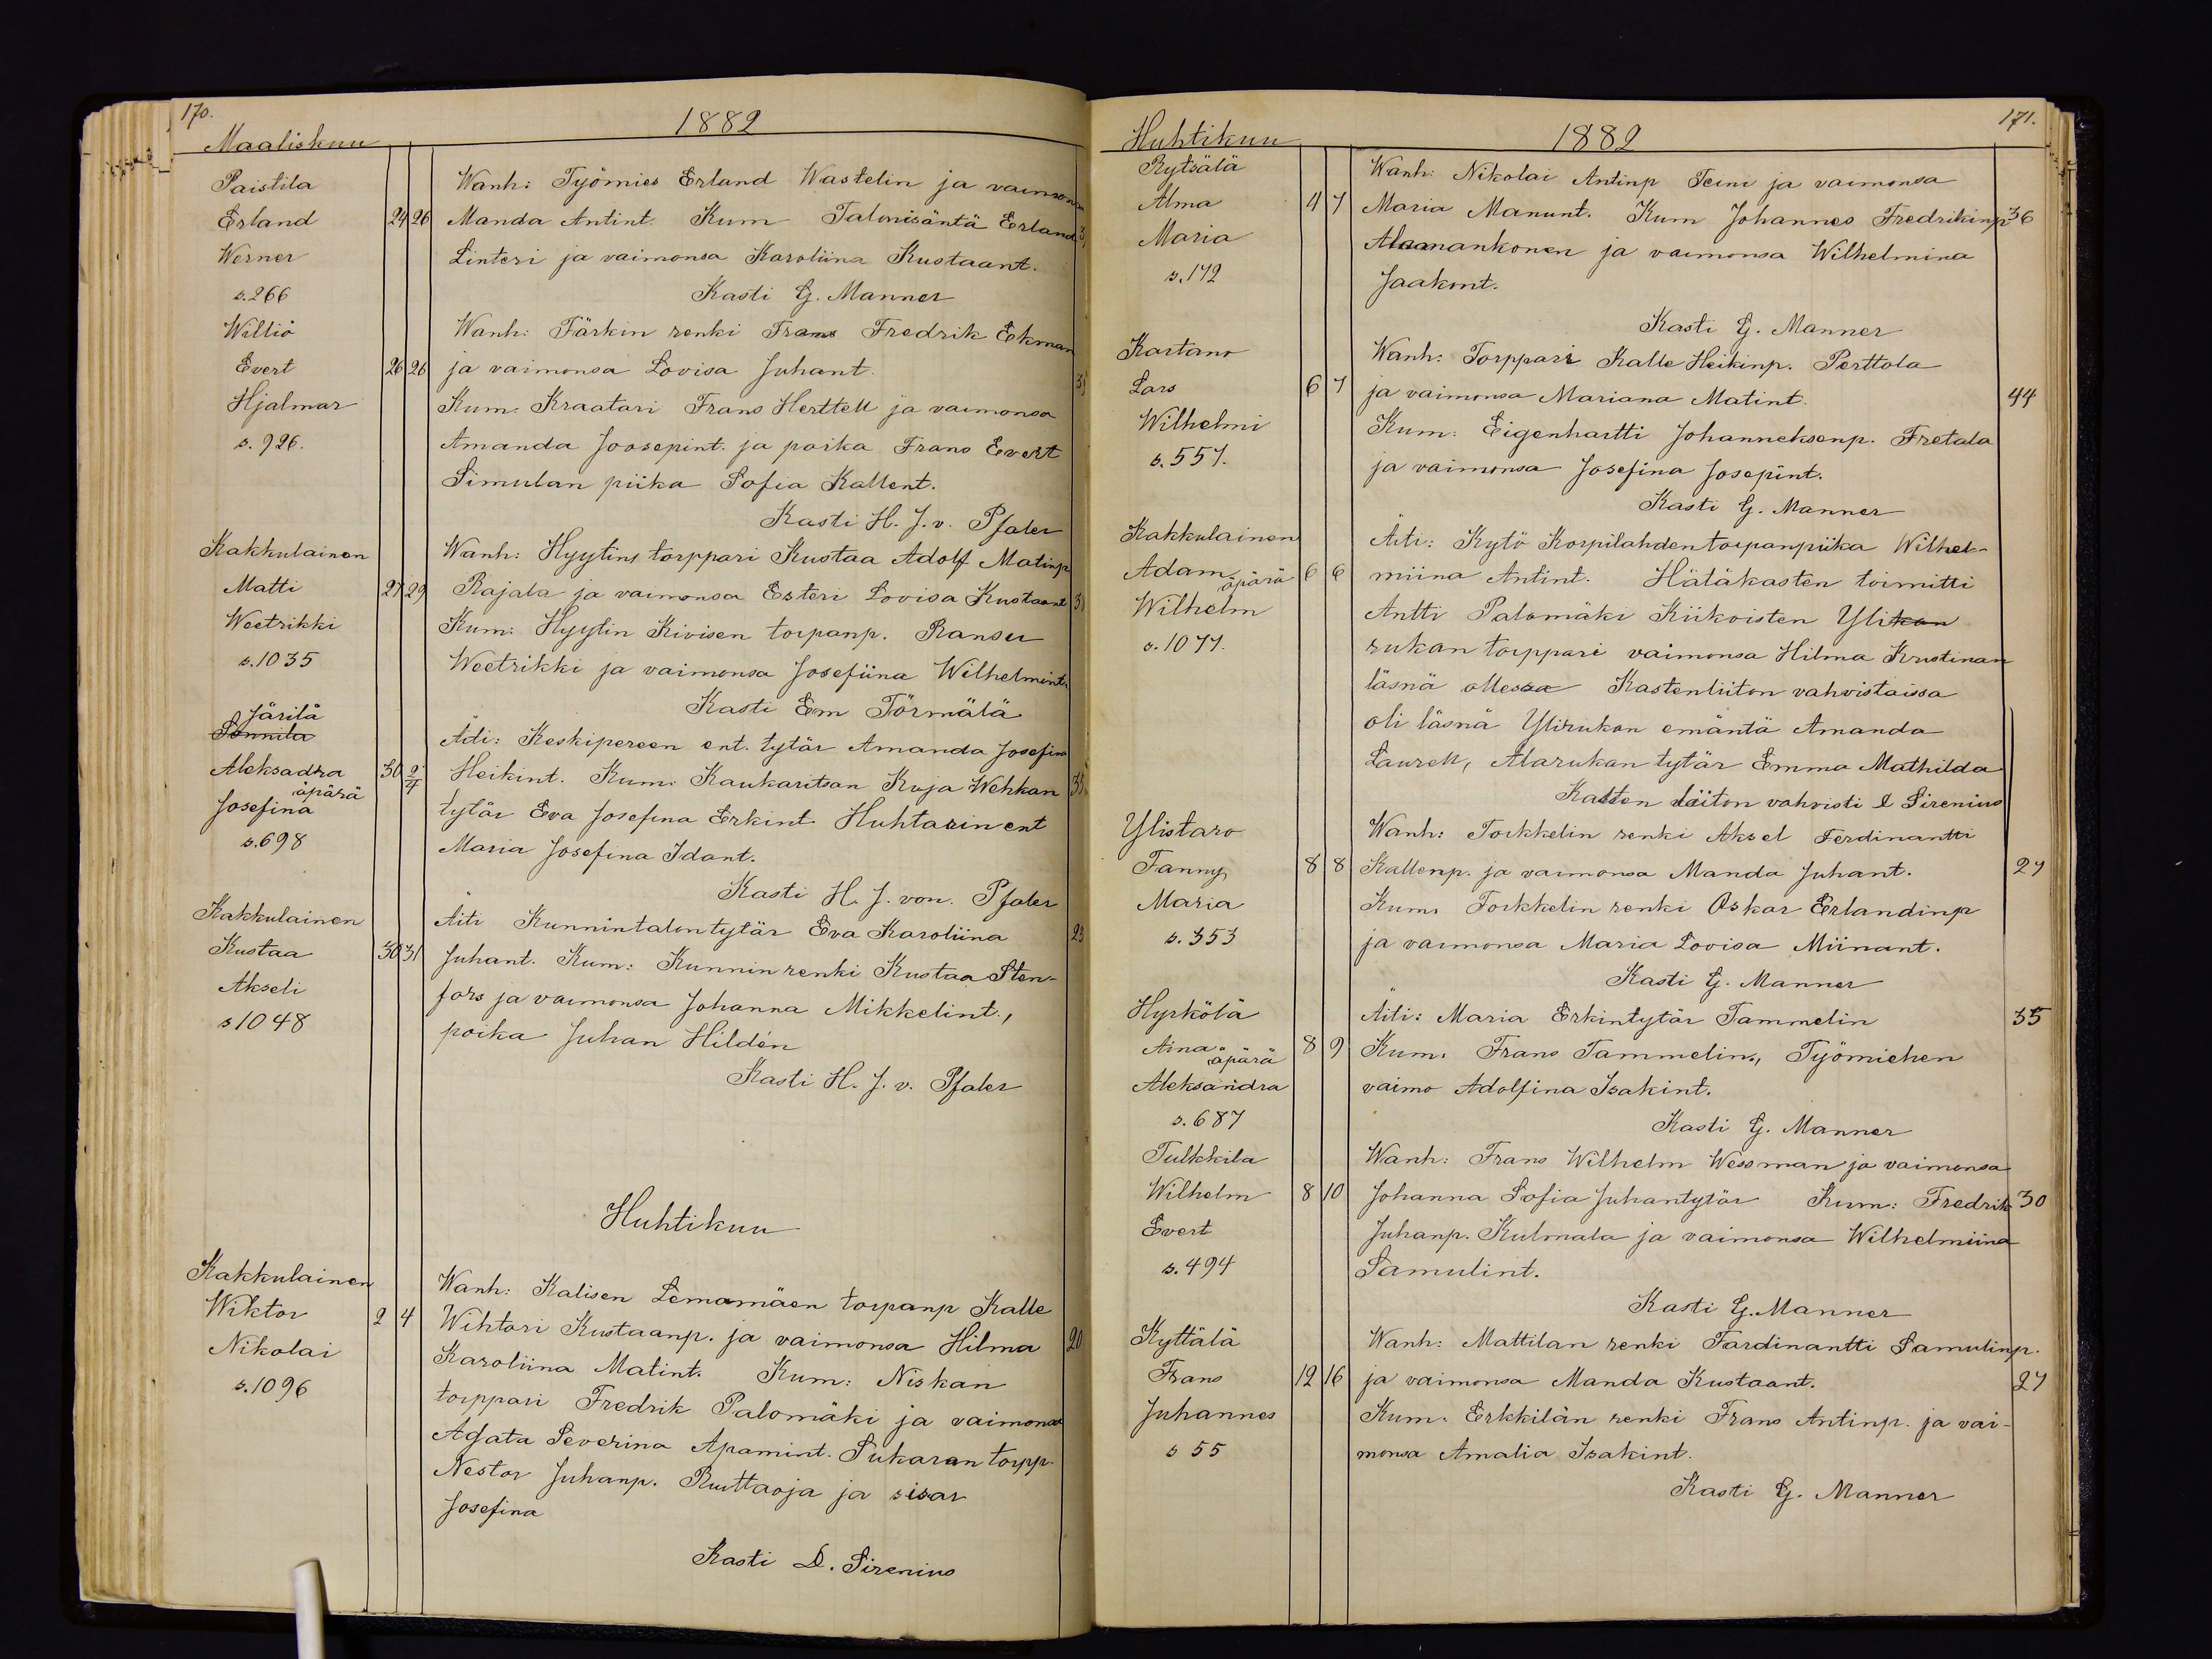 170.
1882
Maaliskuu
Paistila
Wanh: Työmies Erland Wastelin ja vaimonsa
Erland 24 26 Manda Antint. Kum Talonisäntä Erland
Werner
Linteri ja vaimonsa Karoliina Kustaant.
s. 266
Kasti G. Manner
Williö
Wanh: Färkin renki Frans Fredrik Ekman
Evert 26 26 ja vaimonsa Lovisa Juhant.
Hjalmar
Kum. Kraatari Frans Herttell ja vaimonsa
s. 926.
Amanda Joosepint. ja poika Frans Evert
Simulan piika Sofia Kallent.
Kasti H. J. v. Pfaler
Kakkulainen
Wanh: Hyytins torppari Kustaa Adolf Matinp
Matti 27 29 Rajala ja vaimonsa Esteri Lovisa Kustaant
Weetrikki
Kum: Hyytin Kivisen torpanp. Ranseu
s. 1035
Weetrikki ja vaimonsa Josefiina Wilhelmint.
Kasti Em Törmälä
Järilä
Sonnila
Äiti: Keskipereen ent. tytär Amanda Josefina
Aleksadra 30 2/4 Heikint. Kum: Kaukaritsan Kuja Wehkan 35
äpärä
Josefina
tytär Eva Josefina Erkint. Huhtarin ent
s. 698
Maria Josefina Idant.
Kasti H. J. von. Pfaler
Kakkulainen
Äiti Kunnintalon tytär Eva Karoliina 23
Kustaa 30 31 Juhant. Kum: Kunnin renki Kustaa Sten-
Akseli
fors ja vaimonsa Johanna Mikkelint.,
s 1048
poika Juhan Hildén
Kasti H. J. v. Pfaler
Huhtikuu
Kakkulainen
Wanh: Kalisen Lemamäen torpanp Kalle
Wiktor 2 4 Wihtori Kustaanp. ja vaimonsa Hilma 20
Nikolai
Karoliina Matint. Kum: Niskan
s. 1096
torppari Fredrik Palomäki ja vaimonsa
Agata Severina Apamint. Sukaran torpp.
Nestor Juhanp. Ruuttaoja ja sisar
Josefina
Kasti D. Sirenius
171.
Huhtikuu
1882
Rytsälä
Wanh: Nikolai Antinp Teini ja vaimonsa
Alma 4 7 Maria Manunt. Kum Johannes Fredrikinp 36
Maria
Alaanankonen ja vaimonsa Wilhelmina
s. 172
Jaakont.
Kasti G. Manner
Kartano
Wanh: Torppari Kalle Heikinp. Perttola
Lars 6 7 ja vaimonsa Mariana Matint. 44
Wilhelmi
Kum: Eigenhartti Johanneksenp. Fretala
s. 557.
ja vaimonsa Josefina Josepint.
Kasti G. Manner
Kakkulainen
Äiti: Kytö Korpilahden torpanpiika Wilhel-
Adam 6 6 miina Antint. Hätäkasten toimitti
äpärä
Wilhelm
Antti Palomäki Kiikoisten Ylikan
s. 1077.
rukan torppari vaimonsa Hilma Kristinan
läsnä ollessa Kastenliiton vahvistaissa
oli läsnä Ylirukan emäntä Amanda
Laurell, Alarukan tytär Emma Mathilda
Kasten liiton vahvisti D Sirenius
Ylistaro
Wanh: Torkkelin renki Aksel Ferdinantti
Fanny 8 8 Kallenp. ja vaimonsa Manda Juhant. 27
Maria
Kum. Torkkelin renki Oskar Erlandinp
s. 353
ja vaimonsa Maria Lovisa Miinant.
Kasti G. Manner
Hyrkölä
Äiti: Maria Erkintytär Tammelin 35
Aina 8 9 Kum. Frans Tammelin., Työmiehen
äpärä
Aleksandra
vaimo Adolfina Isakint.
s. 687
Kasti G. Manner
Tulkkila
Wanh: Frans Wilhelm Wessman ja vaimonsa
Wilhelm 8 10 Johanna Sofia Juhantytär Kum: Fredrik 30
Evert
Juhanp. Kulmala ja vaimonsa Wilhelmiina
s. 494
Samulint.
Kasti G. Manner
Kyttälä
Wanh: Mattilan renki Fardinantti Samulinp.
Frans 12 16 ja vaimonsa Manda Kustaant. 27
Juhannes
Kum. Erkkilän renki Frans Antinp. ja vai-
s 55
monsa Amalia Isakint.
Kasti G. Manner